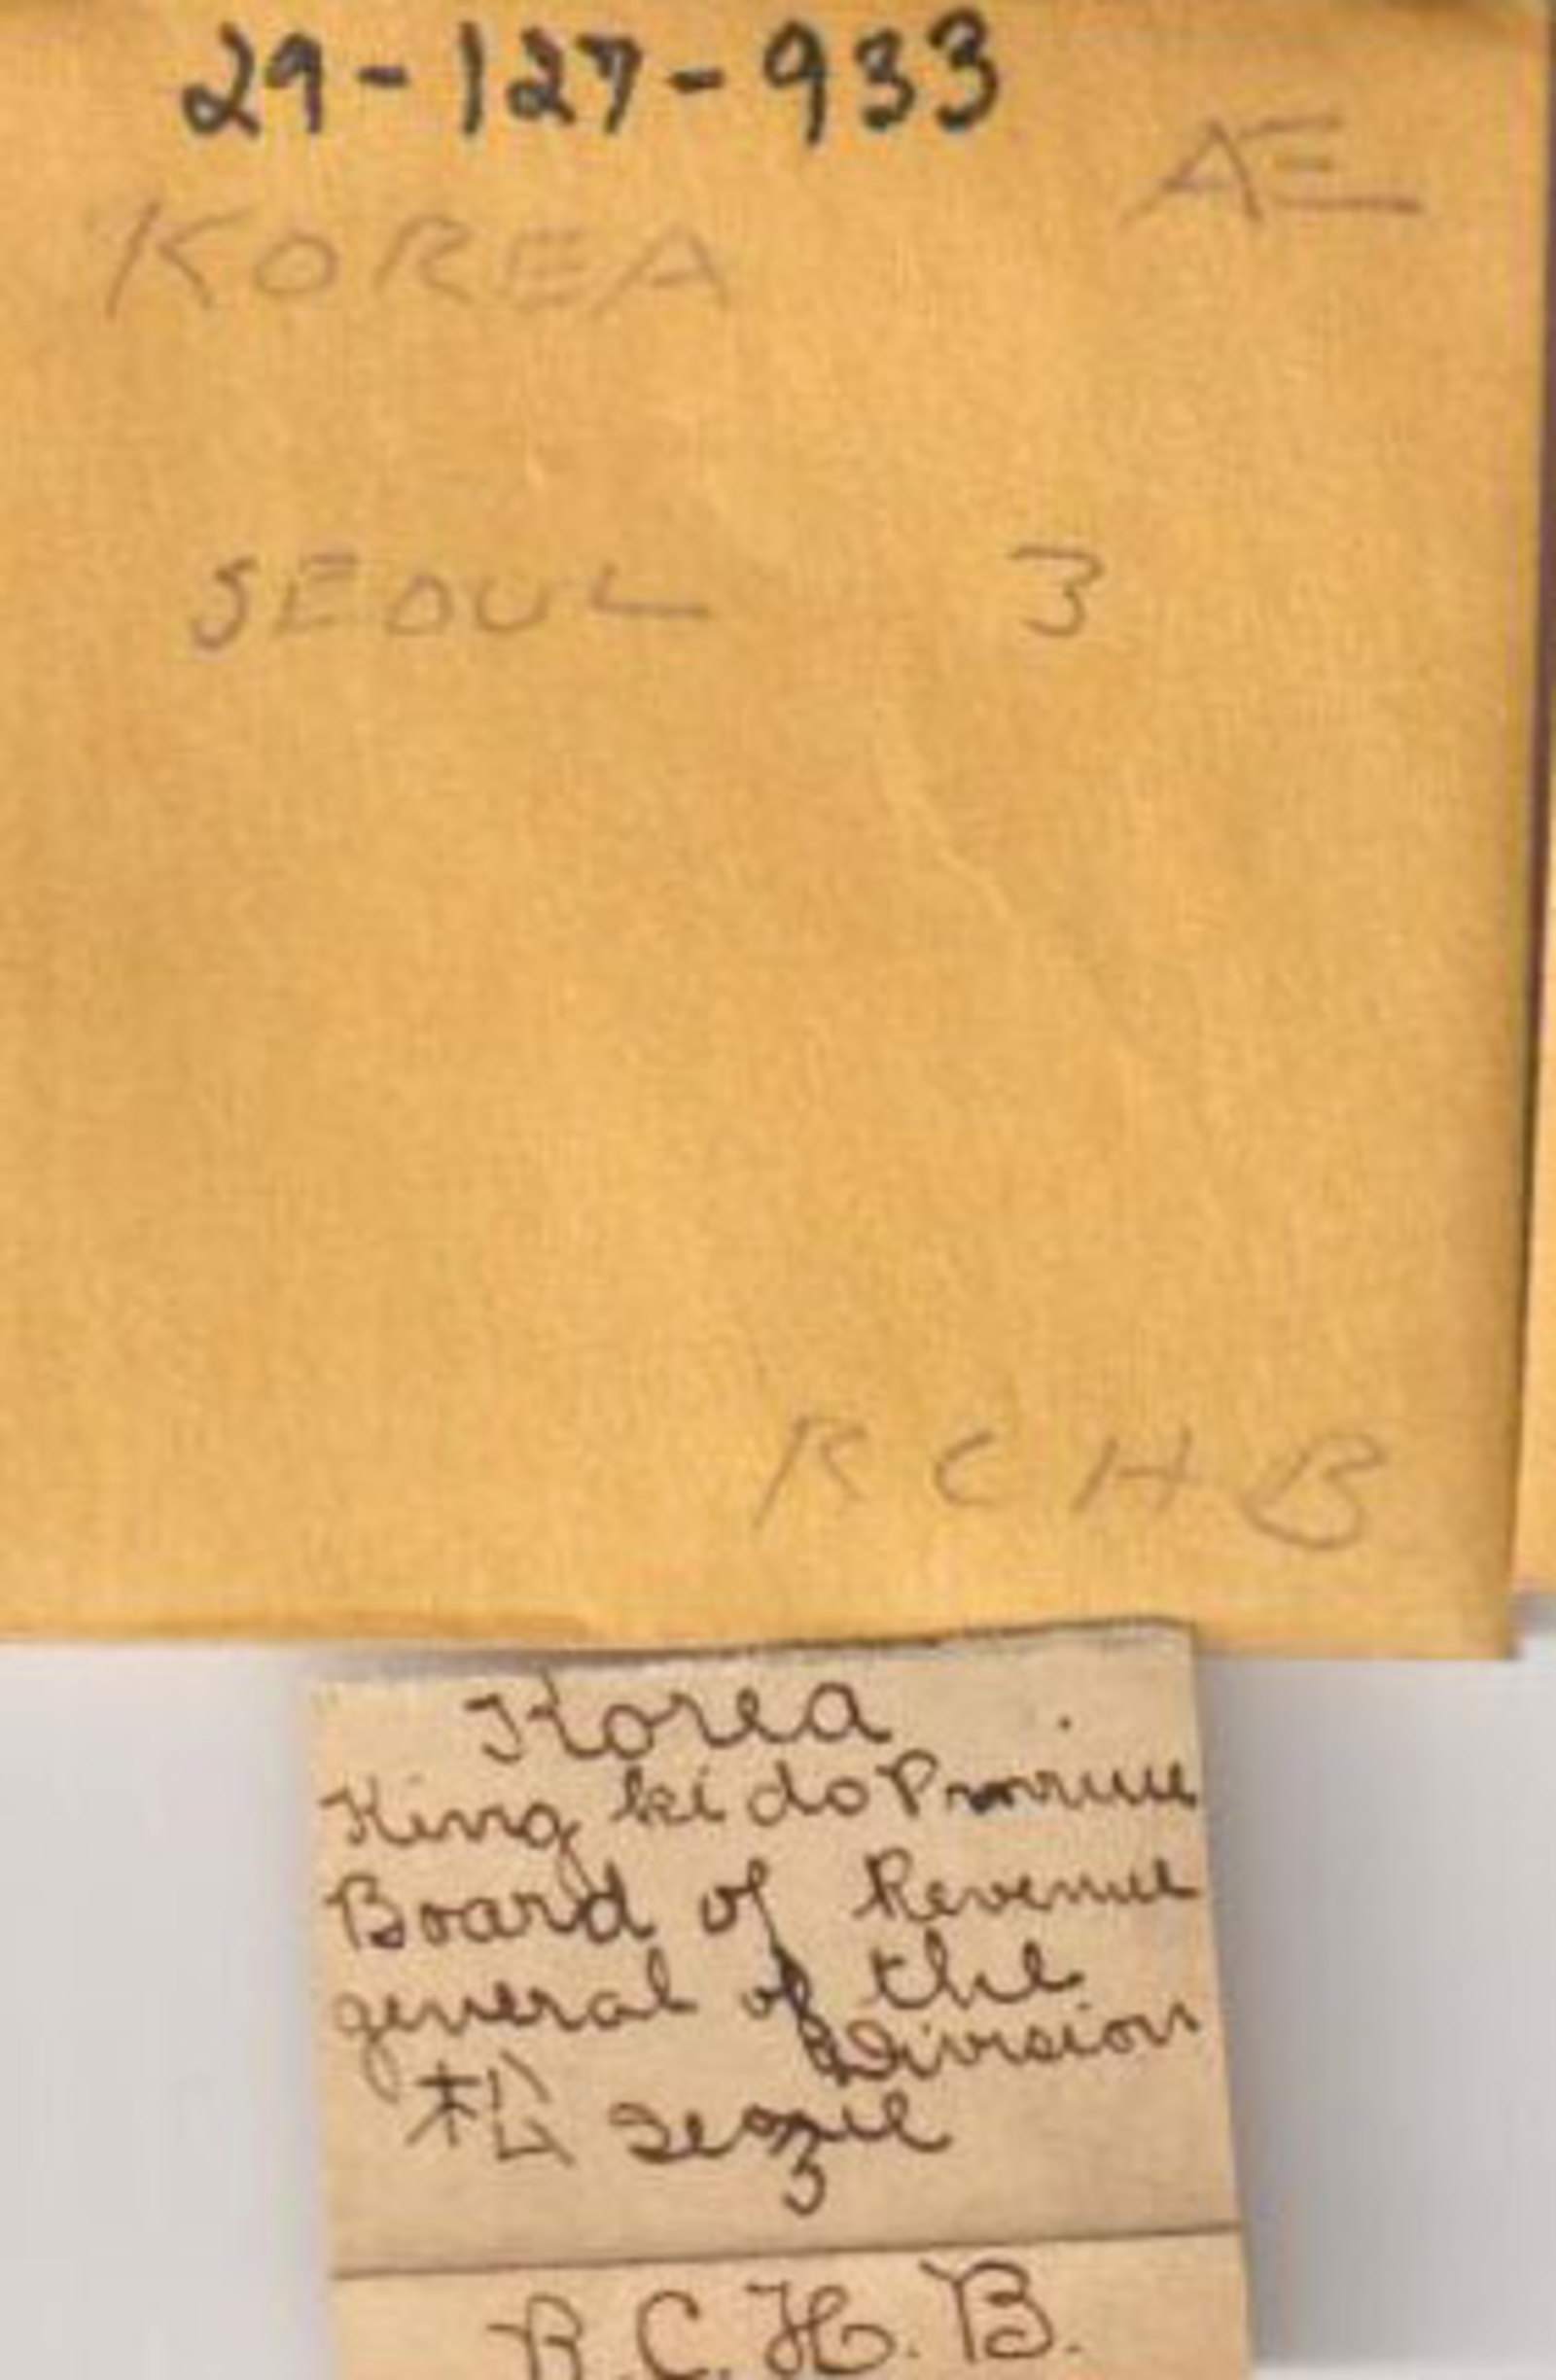 29-127-933
AE
KOREA
SEOUL 3
R C H B
Korea
King ki do Province
Board of Revenue
general of the
Division
松 Seoul
3
R.C.H.B.